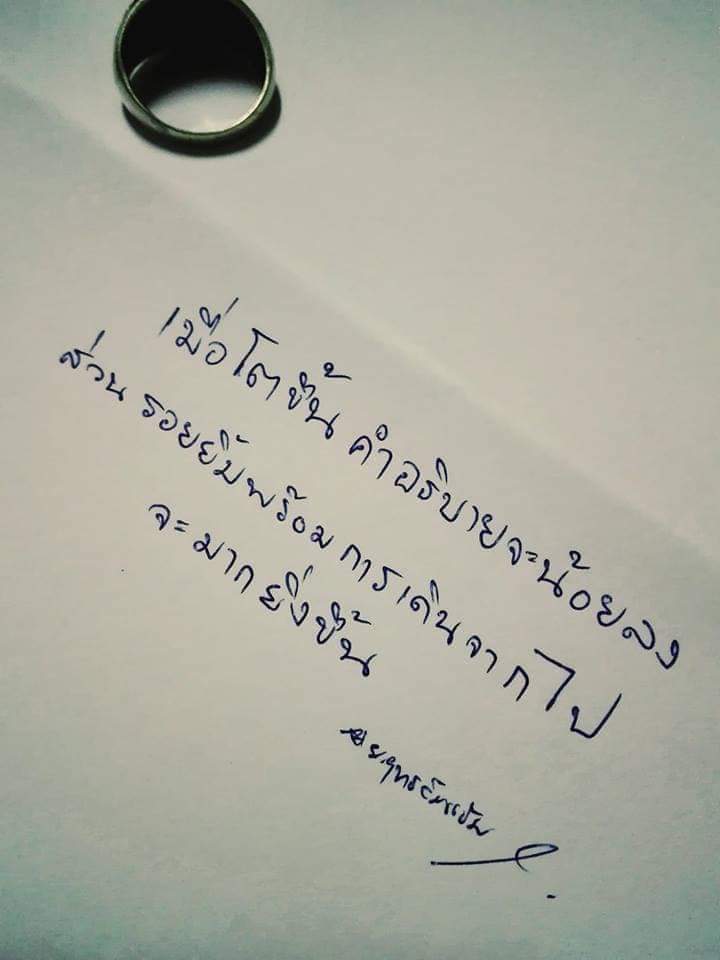 เมื่อโตขึ้น คำอธิบายจะน้อยลง
ส่วน รอยยิ้มพร้อมการเดินจากไป
จะมากยิ่งขึ้น